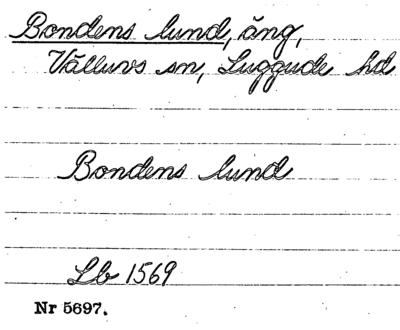 Bondens lund, äng,
Välluvs sn, Luggude hd
Bondens lund
Lb 1569
Nr 5697.